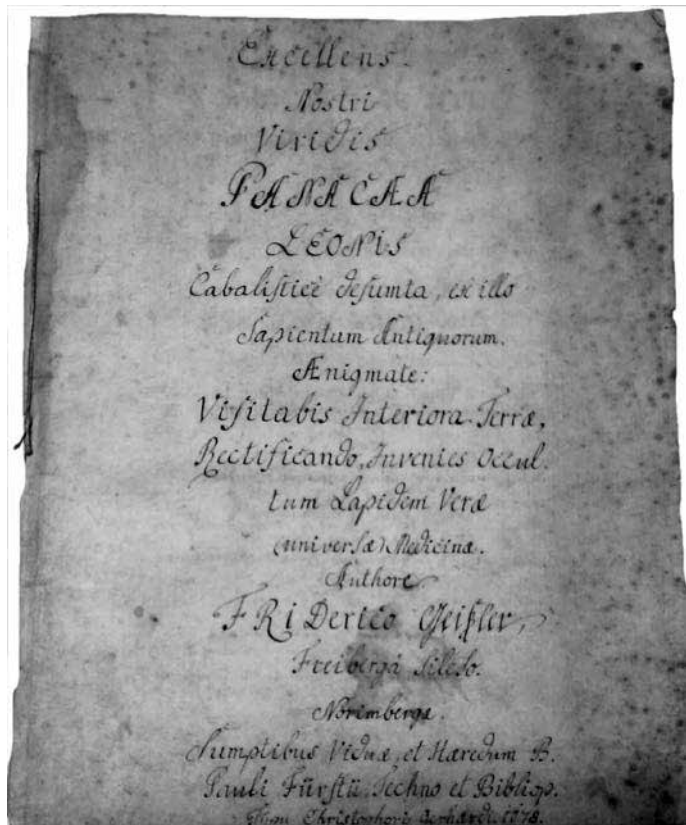 Excellens.
Nostri
Viridis
PANACÆA
LEONiS
Cabalisticè desumta, ex illo
Sapientum Antiquorum.
Ænigmate:
Visitabis Interiora Terræ,
Rectificando, Invenies Occul.
tum Lapidem Veræ
(universæ) Medicinæ.
Authore
FRiDerico Geißler,
Freibergâ Sileso.
Norimbergæ.
Sumptibus Viduæ, et Hæredum B.
Pauli Fürstii, Techno et Bibliop.
Christophori Gerhardi. 1678.